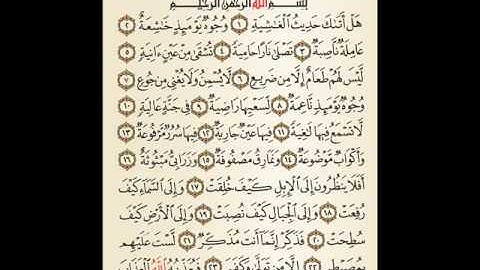 بسم الله الرحمن الرحيم
هَلْ أَتَىٰكَ حَدِيثُ ٱلْغَٰشِيَةِ ١ وُجُوهٌ يَوْمَئِذٍ خَٰشِعَةٌ ٢
عَامِلَةٌ نَّاصِبَةٌ ٣ تَصْلَىٰ نَارًا حَامِيَةً ٤ تُسْقَىٰ مِنْ عَيْنٍ ءَانِيَةٍ ٥
لَّيْسَ لَهُمْ طَعَامٌ إِلَّا مِن ضَرِيعٍ ٦ لَّا يُسْمِنُ وَلَا يُغْنِي مِن جُوعٍ ٧
وُجُوهٌ يَوْمَئِذٍ نَّاعِمَةٌ ٨ لِّسَعْيِهَا رَاضِيَةٌ ٩ فِي جَنَّةٍ عَالِيَةٍ ١٠
لَّا تَسْمَعُ فِيهَا لَٰغِيَةً ١١ فِيهَا عَيْنٌ جَارِيَةٌ ١٢ فِيهَا سُرُرٌ مَّرْفُوعَةٌ ١٣
وَأَكْوَابٌ مَّوْضُوعَةٌ ١٤ وَنَمَارِقُ مَصْفُوفَةٌ ١٥ وَزَرَابِيُّ مَبْثُوثَةٌ ١٦
أَفَلَا يَنظُرُونَ إِلَى ٱلْإِبِلِ كَيْفَ خُلِقَتْ ١٧ وَإِلَى ٱلسَّمَآءِ كَيْفَ
رُفِعَتْ ١٨ وَإِلَى ٱلْجِبَالِ كَيْفَ نُصِبَتْ ١٩ وَإِلَى ٱلْأَرْضِ كَيْفَ
سُطِحَتْ ٢٠ فَذَكِّرْ إِنَّمَآ أَنتَ مُذَكِّرٌ ٢١ لَّسْتَ عَلَيْهِم
بِمُصَيْطِرٍ ٢٢ إِلَّا مَن تَوَلَّىٰ وَكَفَرَ ٢٣ فَيُعَذِّبُهُ ٱللَّهُ ٱلْعَذَابَ